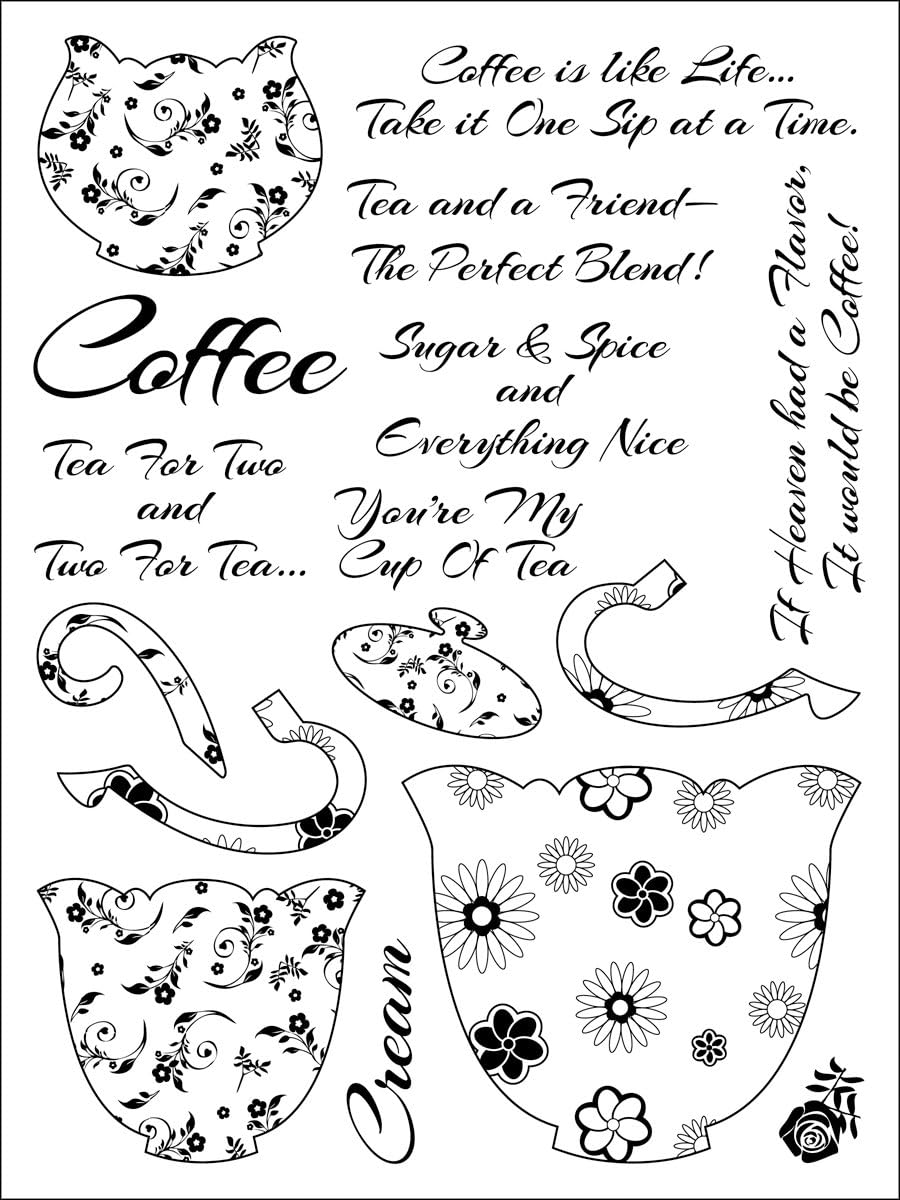 Coffee is like Life...
Take it One Sip at a Time.
Tea and a Friend—
The Perfect Blend!
If Heaven had a Flavor,
It would be Coffee!
Coffee
Sugar & Spice
and
Everything Nice
Tea For Two
and
Two For Tea...
You're My
Cup Of Tea
Cream